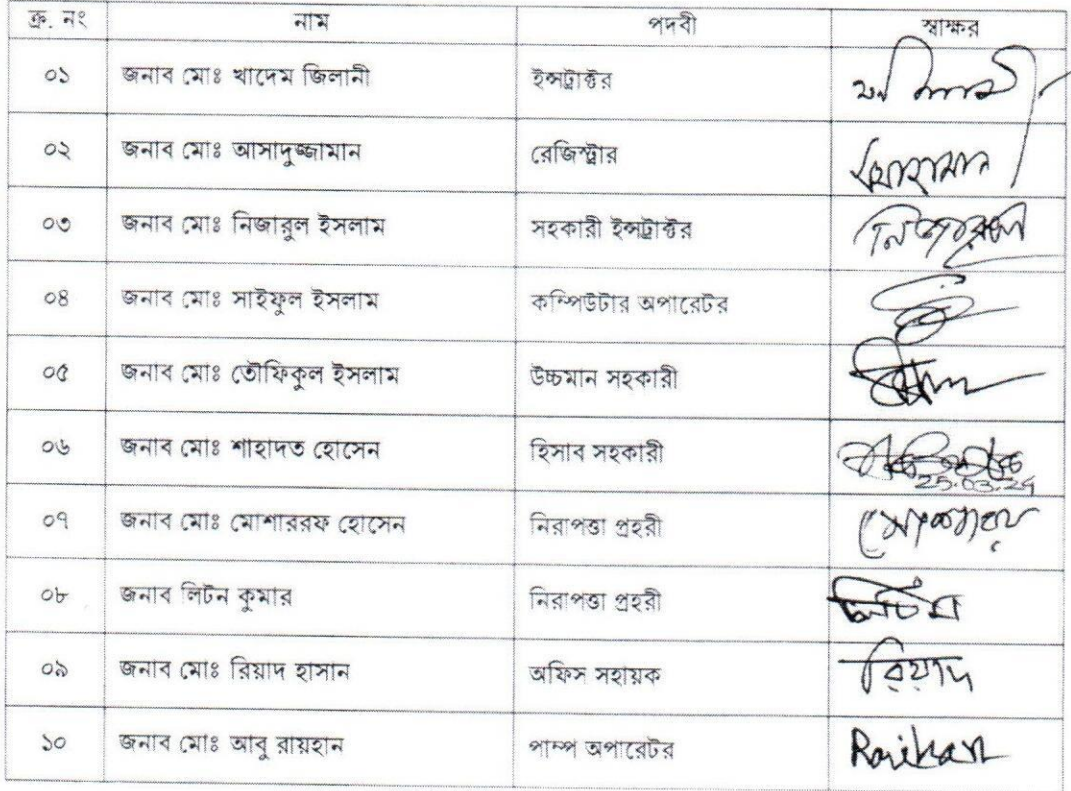 ক্র. নং নাম পদবী স্বাক্ষর
০১ জনাব মোঃ খাদেম জিলানী ইন্সট্রাক্টর
০২ জনাব মোঃ আসাদুজ্জামান রেজিস্ট্রার
০৩ জনাব মোঃ নিজারুল ইসলাম সহকারী ইন্সট্রাক্টর
০৪ জনাব মোঃ সাইফুল ইসলাম কম্পিউটার অপারেটর
০৫ জনাব মোঃ তৌফিকুল ইসলাম উচ্চমান সহকারী
০৬ জনাব মোঃ শাহাদত হোসেন হিসাব সহকারী
25.03.24
০৭ জনাব মোঃ মোশাররফ হোসেন নিরাপত্তা প্রহরী
০৮ জনাব লিটন কুমার নিরাপত্তা প্রহরী
০৯ জনাব মোঃ রিয়াদ হাসান অফিস সহায়ক রিয়াদ
১০ জনাব মোঃ আবু রায়হান পাম্প অপারেটর Raihan